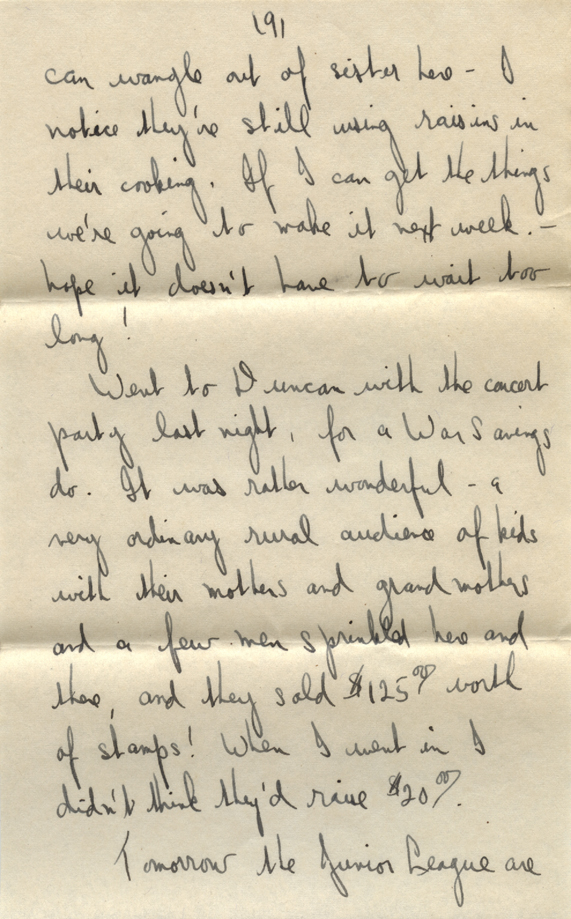 191
can wangle out of sister here - I
notice they're still using raisins in
their cooking. If I can get the things
we're going to make it next week. -
hope it doesn't have to wait too
long!
Went to Duncan with the concert
party last night, for a War Savings
do. It was rather wonderful - a
very ordinary rural audience of kids
with their mothers and grandmothers
and a few men sprinkled here and
there, and they sold $125.00 worth
of stamps! When I went in I
didn't think they'd raise $20.00.
Tomorrow the Junior League are